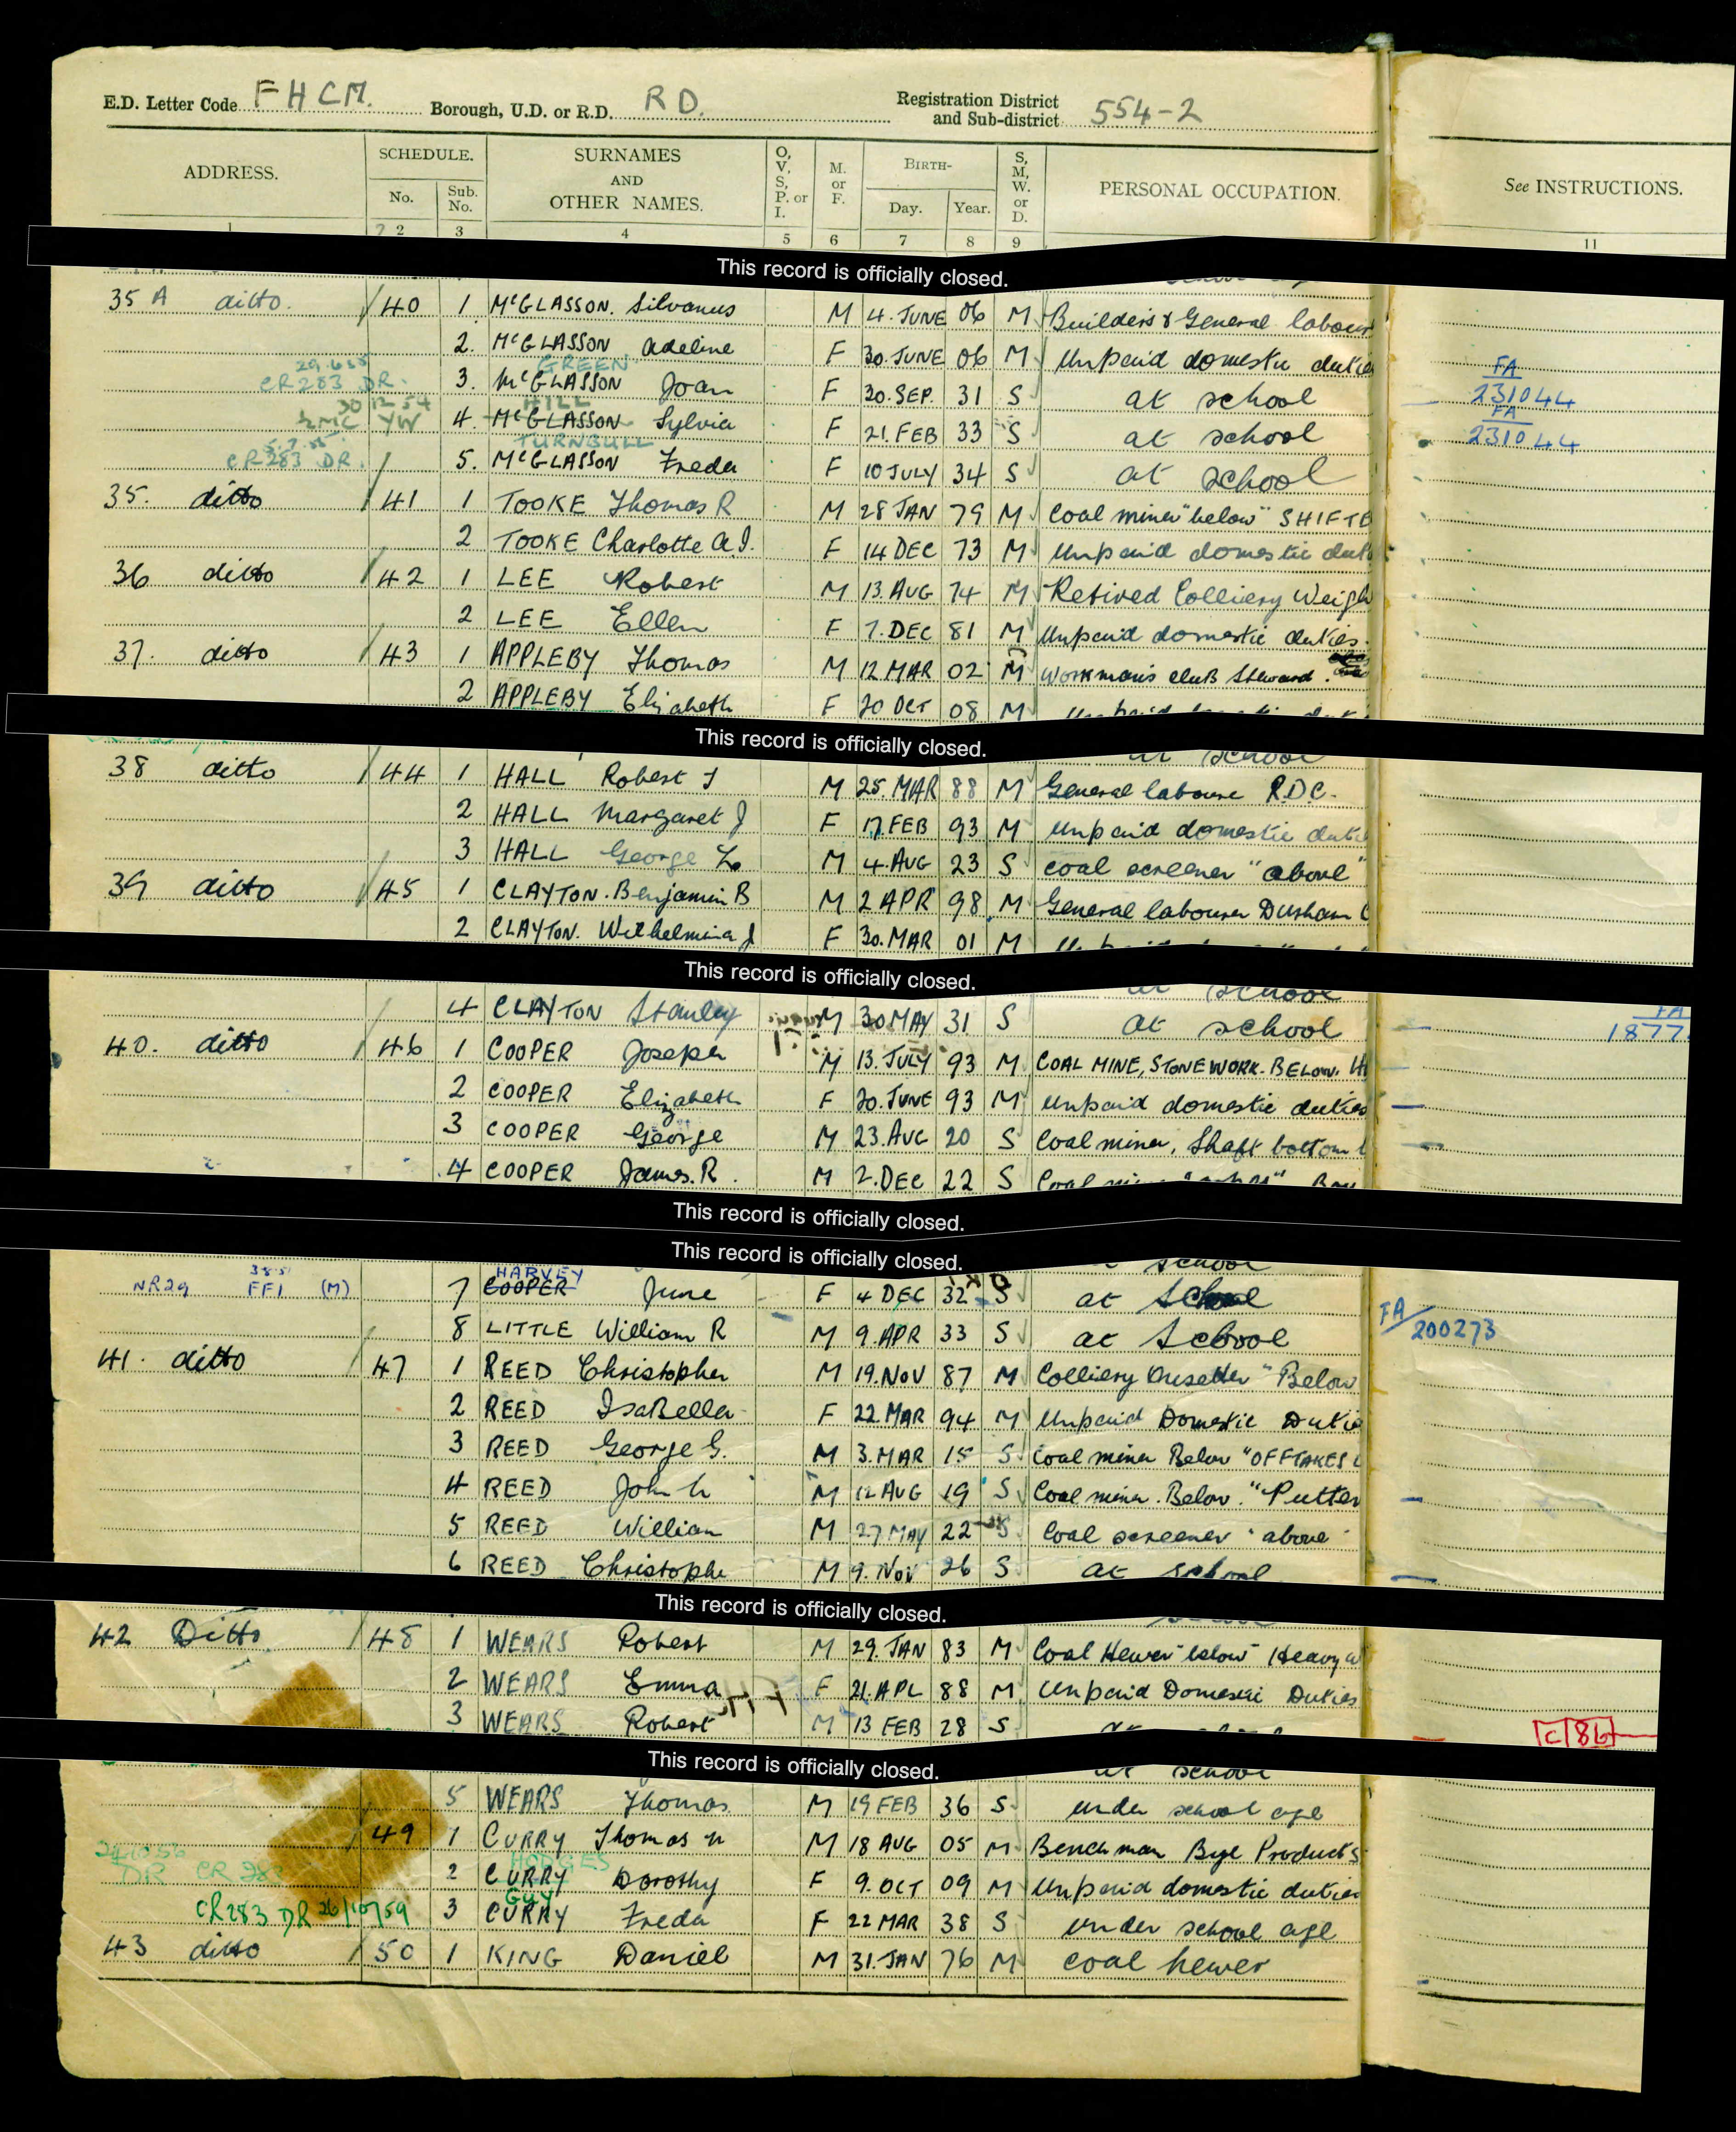 E.D. Letter Code F H C M. Borough, U.D. or R.D. R D. Registration District and Sub-district 554-2
ADDRESS. SCHEDULE. No. Sub. No. SURNAMES AND OTHER NAMES. O, V, S, P. or I. M. or F. BIRTH- Day. Year. S, M, W. or D. PERSONAL OCCUPATION. See INSTRUCTIONS.
1 2 3 4 5 6 7 8 9 11
This record is officially closed.
35 A ditto. 40 1 McGLASSON. Silvanus M 4. JUNE 06 M Builders & General labour
2. McGLASSON Adeline F 30. JUNE 06 M Unpaid domestic duties
GREEN
CR283 DR. 3. McGLASSON Joan F 30. SEP. 31 S at school FA 231044
30 12 54 HILL
YW 4. McGLASSON Sylvia F 21. FEB 33 S at school FA 231044
5.7.55 TURNBULL
CR283 DR. 5. McGLASSON Freda F 10 JULY 34 S at school
35. ditto 41 1 TOOKE Thomas R M 28 JAN 79 M Coal miner "below" SHIFTE
2 TOOKE Charlotte A.I. F 14 DEC 73 M Unpaid domestic duti
36 ditto 42 1 LEE Robert M 13. AUG 74 M Retired Colliery Weigh
2 LEE Ellen F 7. DEC 81 M Unpaid domestic duties.
37. ditto 43 1 APPLEBY Thomas M 12 MAR 02 M Workman's club Steward.
2 APPLEBY Elizabeth F 20 OCT 08 M
This record is officially closed.
at school
38 ditto 44 1 HALL Robert J M 25. MAR 88 M General laboure R.D.C.
2 HALL Margaret J F 17. FEB 93 M Unpaid domestic duti
3 HALL George M 4. AUG 23 S Coal screener "above"
39 ditto 45 1 CLAYTON. Benjamin B M 2 APR 98 M General labourer Durham C
2 CLAYTON. Wilhelmina J F 30. MAR 01 M
This record is officially closed.
at school
4 CLAYTON Stanley M 30 MAY 31 S at school FA 1877
40. ditto 46 1 COOPER Joseph M 13. JULY 93 M COAL MINE, STONEWORK. BELOW. H
2 COOPER Elizabeth F 20. JUNE 93 M Unpaid domestic duties
3 COOPER George M 23. AUG 20 S Coal miner, Shaft bottom
4 COOPER James. R. M 2. DEC 22 S
This record is officially closed.
This record is officially closed.
school
HARVEY
NR29 FF1 (M) 7 COOPER June F 4 DEC 32 S at School
8 LITTLE William R M 9. APR 33 S at School FA/200273
41. ditto 47 1 REED Christopher M 19. NOV 87 M Colliery Onsetter "Below
2 REED Isabella F 22 MAR 94 M Unpaid Domestic Dutie
3 REED George G. M 3. MAR 15 S Coal miner Below "OFFTAKES
4 REED John W M 12 AUG 19 S Coal miner. Below. "Putter
5 REED William M 27 MAY 22 S Coal screener "above"
6 REED Christophe M 9. NOV 26 S at school
This record is officially closed.
42 Ditto 48 1 WEARS Robert M 29. JAN 83 M Coal Hewer "below" Heavy w
2 WEARS Emma F 21. APL 88 M Unpaid Domestic Duties
3 WEARS Robert M 13 FEB 28 S C 86
This record is officially closed.
at school
5 WEARS Thomas M 19 FEB 36 S under school age
49 1 CURRY Thomas W M 18 AUG 05 M Bench man Bye Products
HODGES
DR CR 283 2 CURRY Dorothy F 9. OCT 09 M Unpaid domestic duties
GUY
CR283 DR 26/10/59 3 CURRY Freda F 22 MAR 38 S under school age
43 ditto 50 1 KING Daniel M 31. JAN 76 M Coal hewer